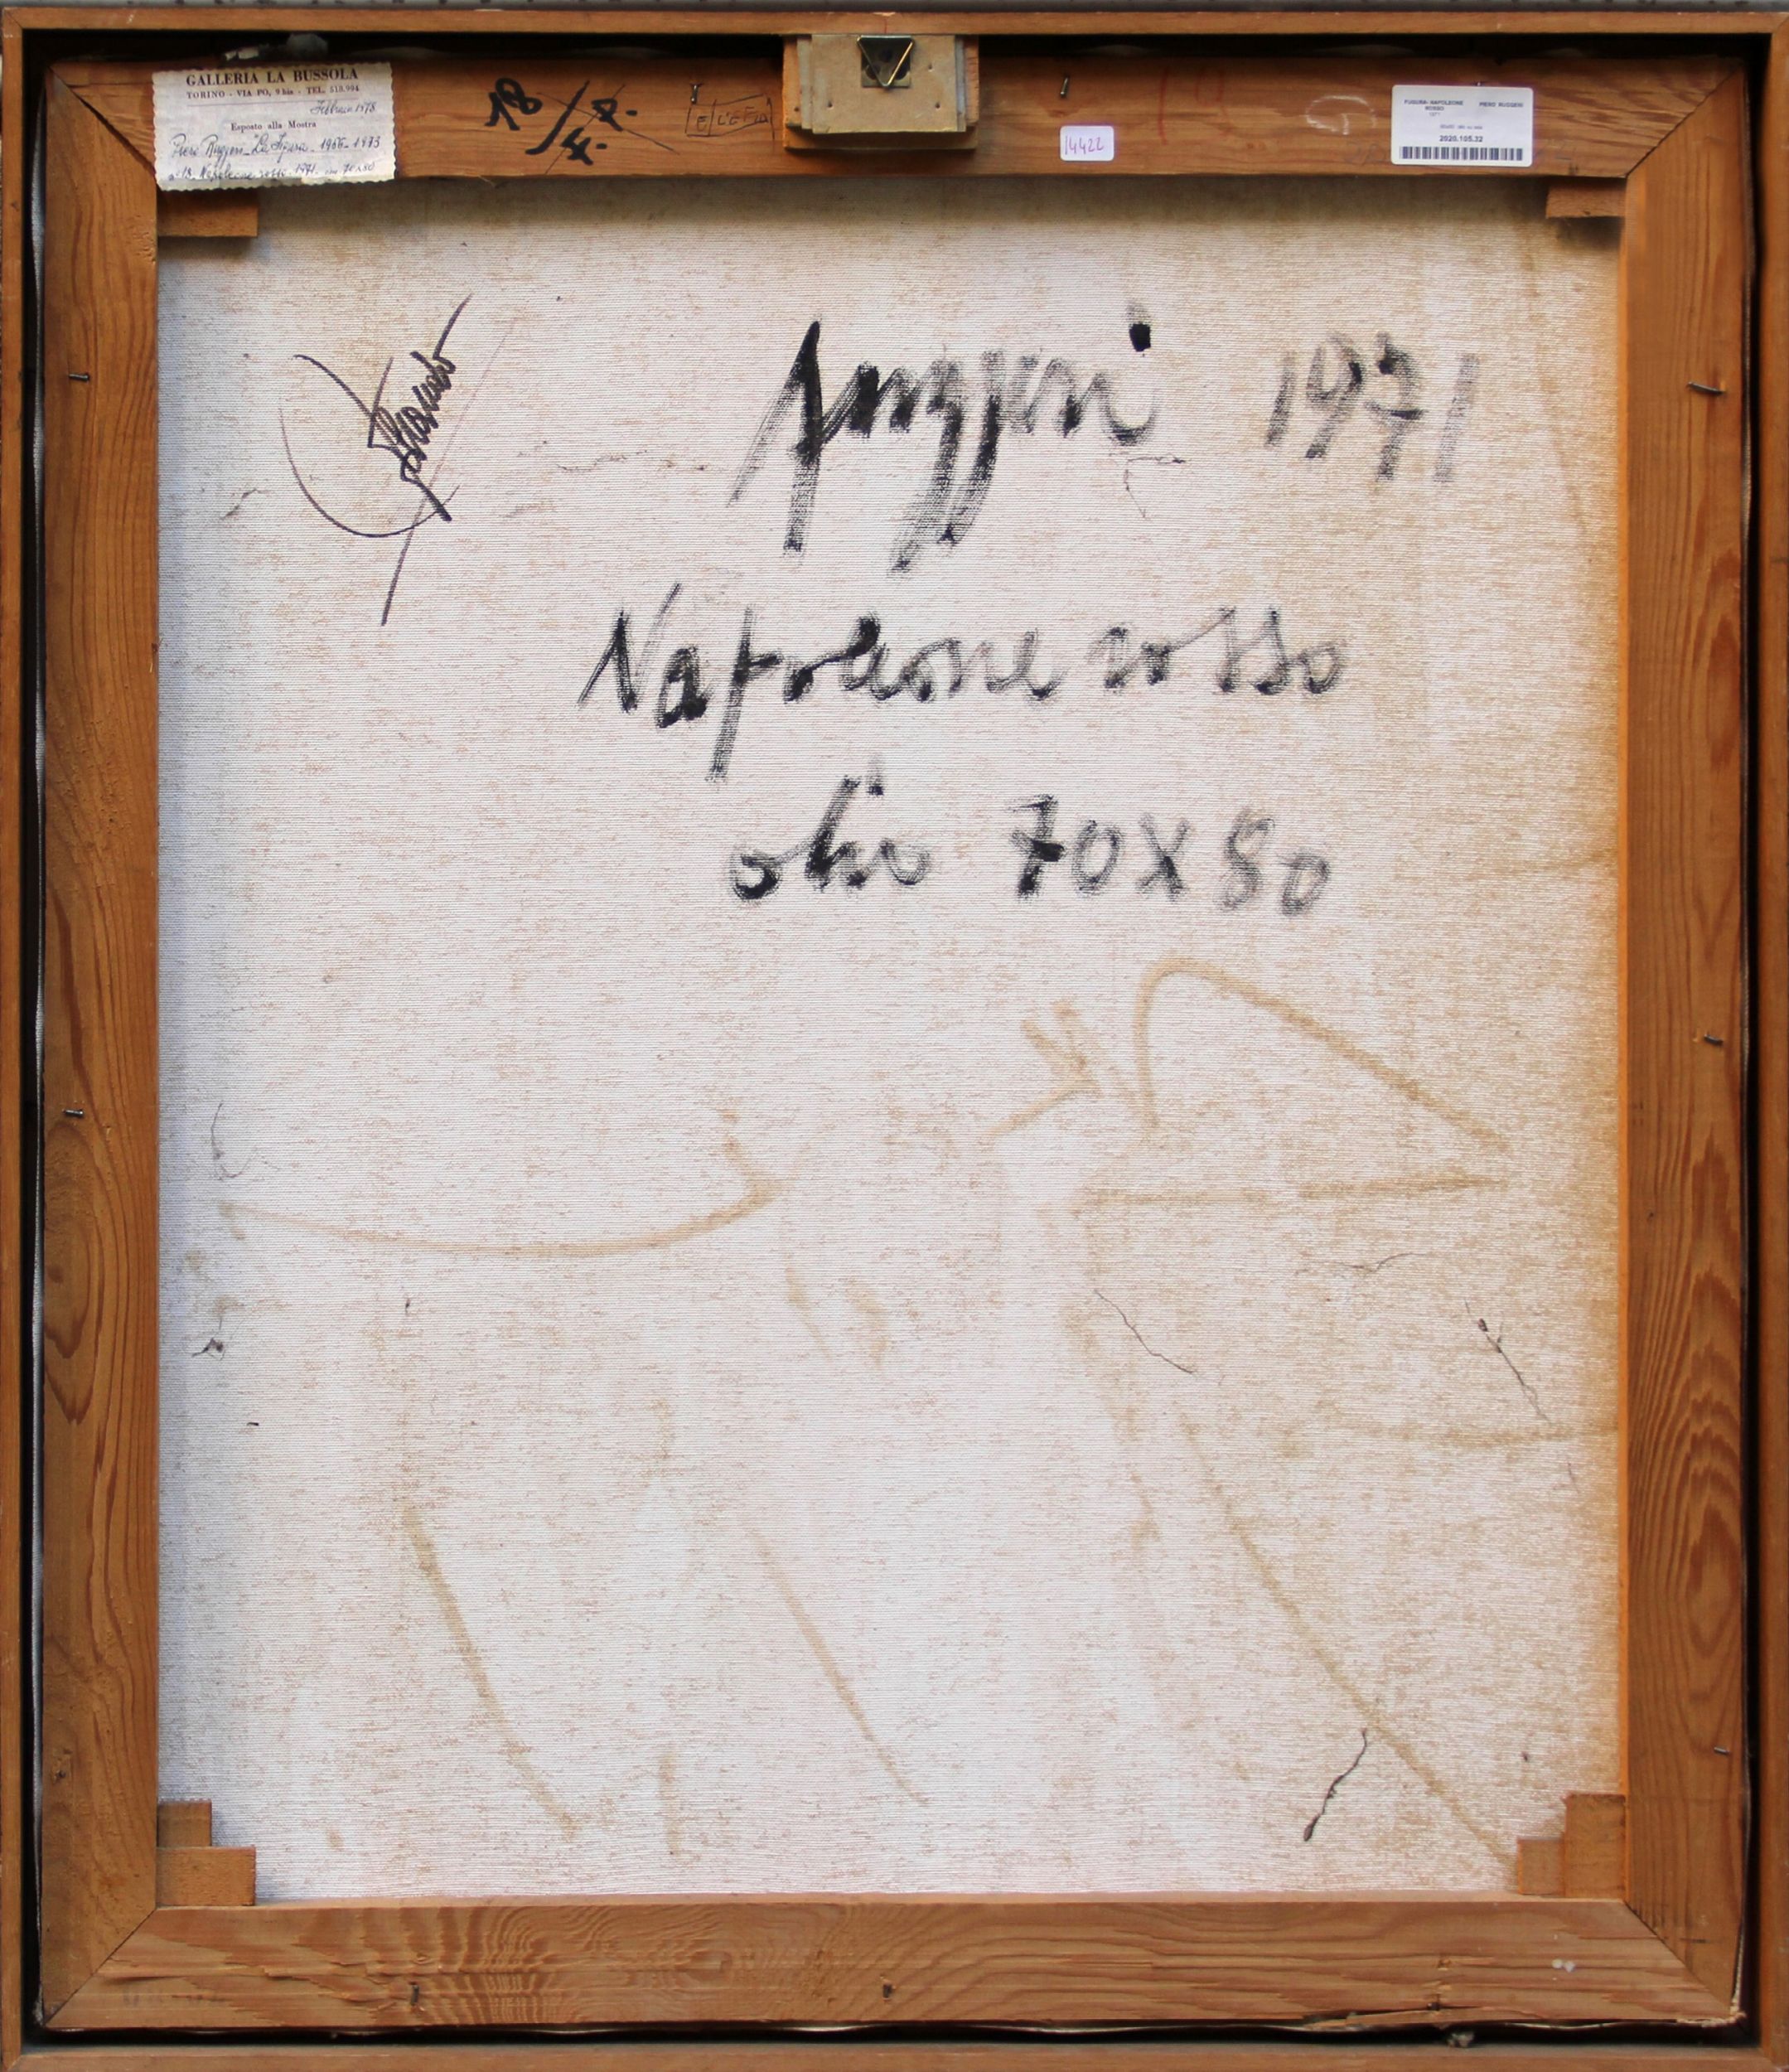 GALLERIA LA BUSSOLA
TORINO - VIA PO, 9 bis - TEL. 518.994
Febbraio 1978
Esposto alla Mostra
Piero Ruggeri "La Figura" 1956-1973
Napoleone rosso 1971 cm 70x80
18/
14422
PIERO RUGGERI
2020.105.32
Ruggeri 1971
Napoleone rosso
olio 70X80